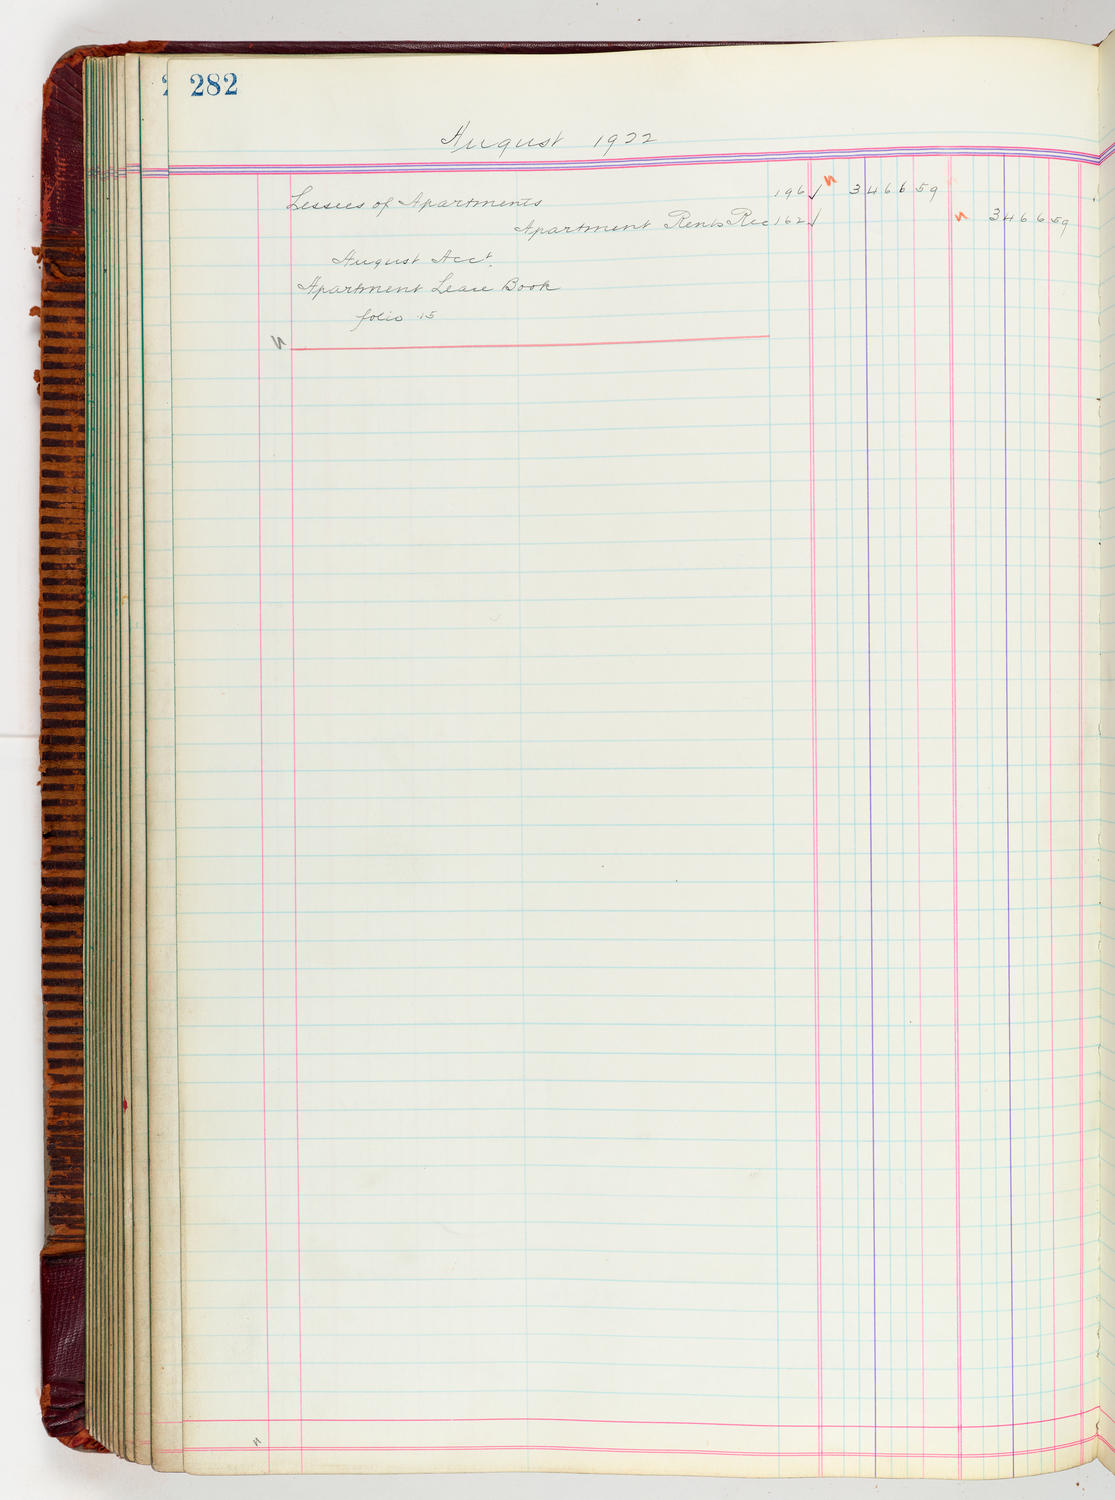 282
August 1922
Lessees of Apartments 196 √ 3 4 6 6 59
Apartment Rents Rec 162 √ 3 4 6 6 59
August Acct.
Apartment Lease Book
folio 15